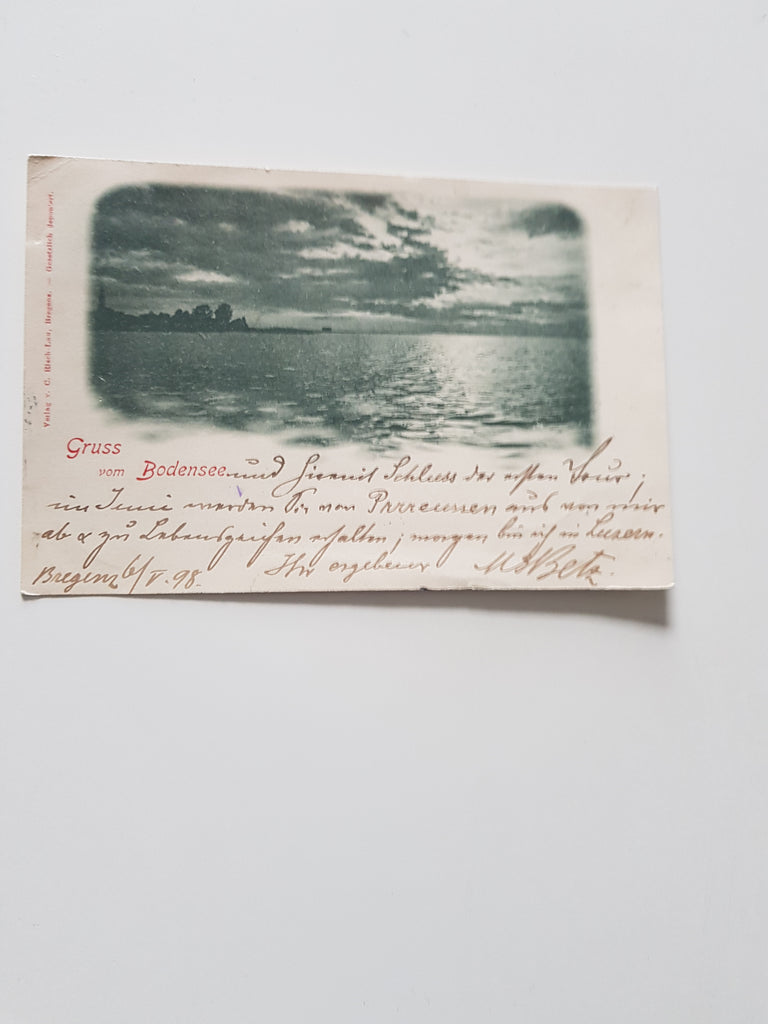 Verlag v. C. Risch-Lau, Bregenz. — Gesetzlich deponiert.
Gruss
vom Bodensee und hiermit Schluss der ersten Tour;
im Juni werden Sie von Prrreussen aus von mir
ab & zu Lebenszeichen erhalten; morgen bin ich in Luzern.
Bregenz 6/V. 98. Ihr ergebener Betz.